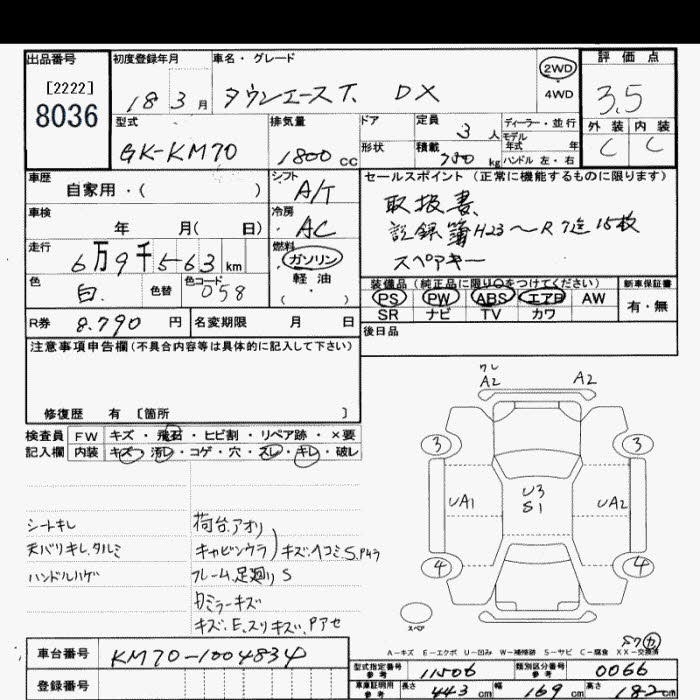 出品番号
[2222]
8036
初度登録年月
18 3 月
車名・グレード
タウンエースT. DX
2WD
4WD
評価点
3.5
外装 内装
C C
型式
GK-KM70
排気量
1800 CC
ドア
形状
定員 3 人
積載 750 kg
ディーラー・並行
モデル年式 年
ハンドル 左・右
車歴
自家用・( )
シフト
A/T
車検
年 月( 日)
冷房
AC
走行
6万9千563 km
燃料
ガソリン
軽油
( ・ )
色
白.
色替
色コード
058
セールスポイント (正常に機能するものに限ります)
取扱書
記録簿H23〜R7迄15枚
スペアキー
装備品(純正品に限り○をつけてください)
PS PW ABS エアB AW
SR ナビ TV カワ
新車保証書
有・無
後日品
R券 8.790 円
名変期限 月 日
注意事項申告欄(不具合内容等は具体的に記入して下さい)
修復歴 有 〔箇所 〕
検査員記入欄
FW キズ・飛石・ヒビ割・リペア跡・×要
内装 キズ・汚レ・コゲ・穴・スレ・キレ・破レ
シートキレ
天バリキレ.タルミ
ハンドルハゲ
荷台.アオリ
キャビンウラ)キズ.ヘコミS.Pタラ
フレーム.足廻りS
ミラーキズ
キズ.E.スリキズ.Pアセ
ワレ
A2 A2
3 3
UA1
U3
S1
UA2
4 4
スペア
A-キズ E-エクボ U-凹み W-補修跡 S-サビ C-腐食 XX-交換済
車台番号
KM70-1004834
登録番号
型式指定番号
参考
11506
類別区分番号
参考
0066
車庫証明用
参考
長さ 443 cm 幅 169 cm 高さ 182 cm